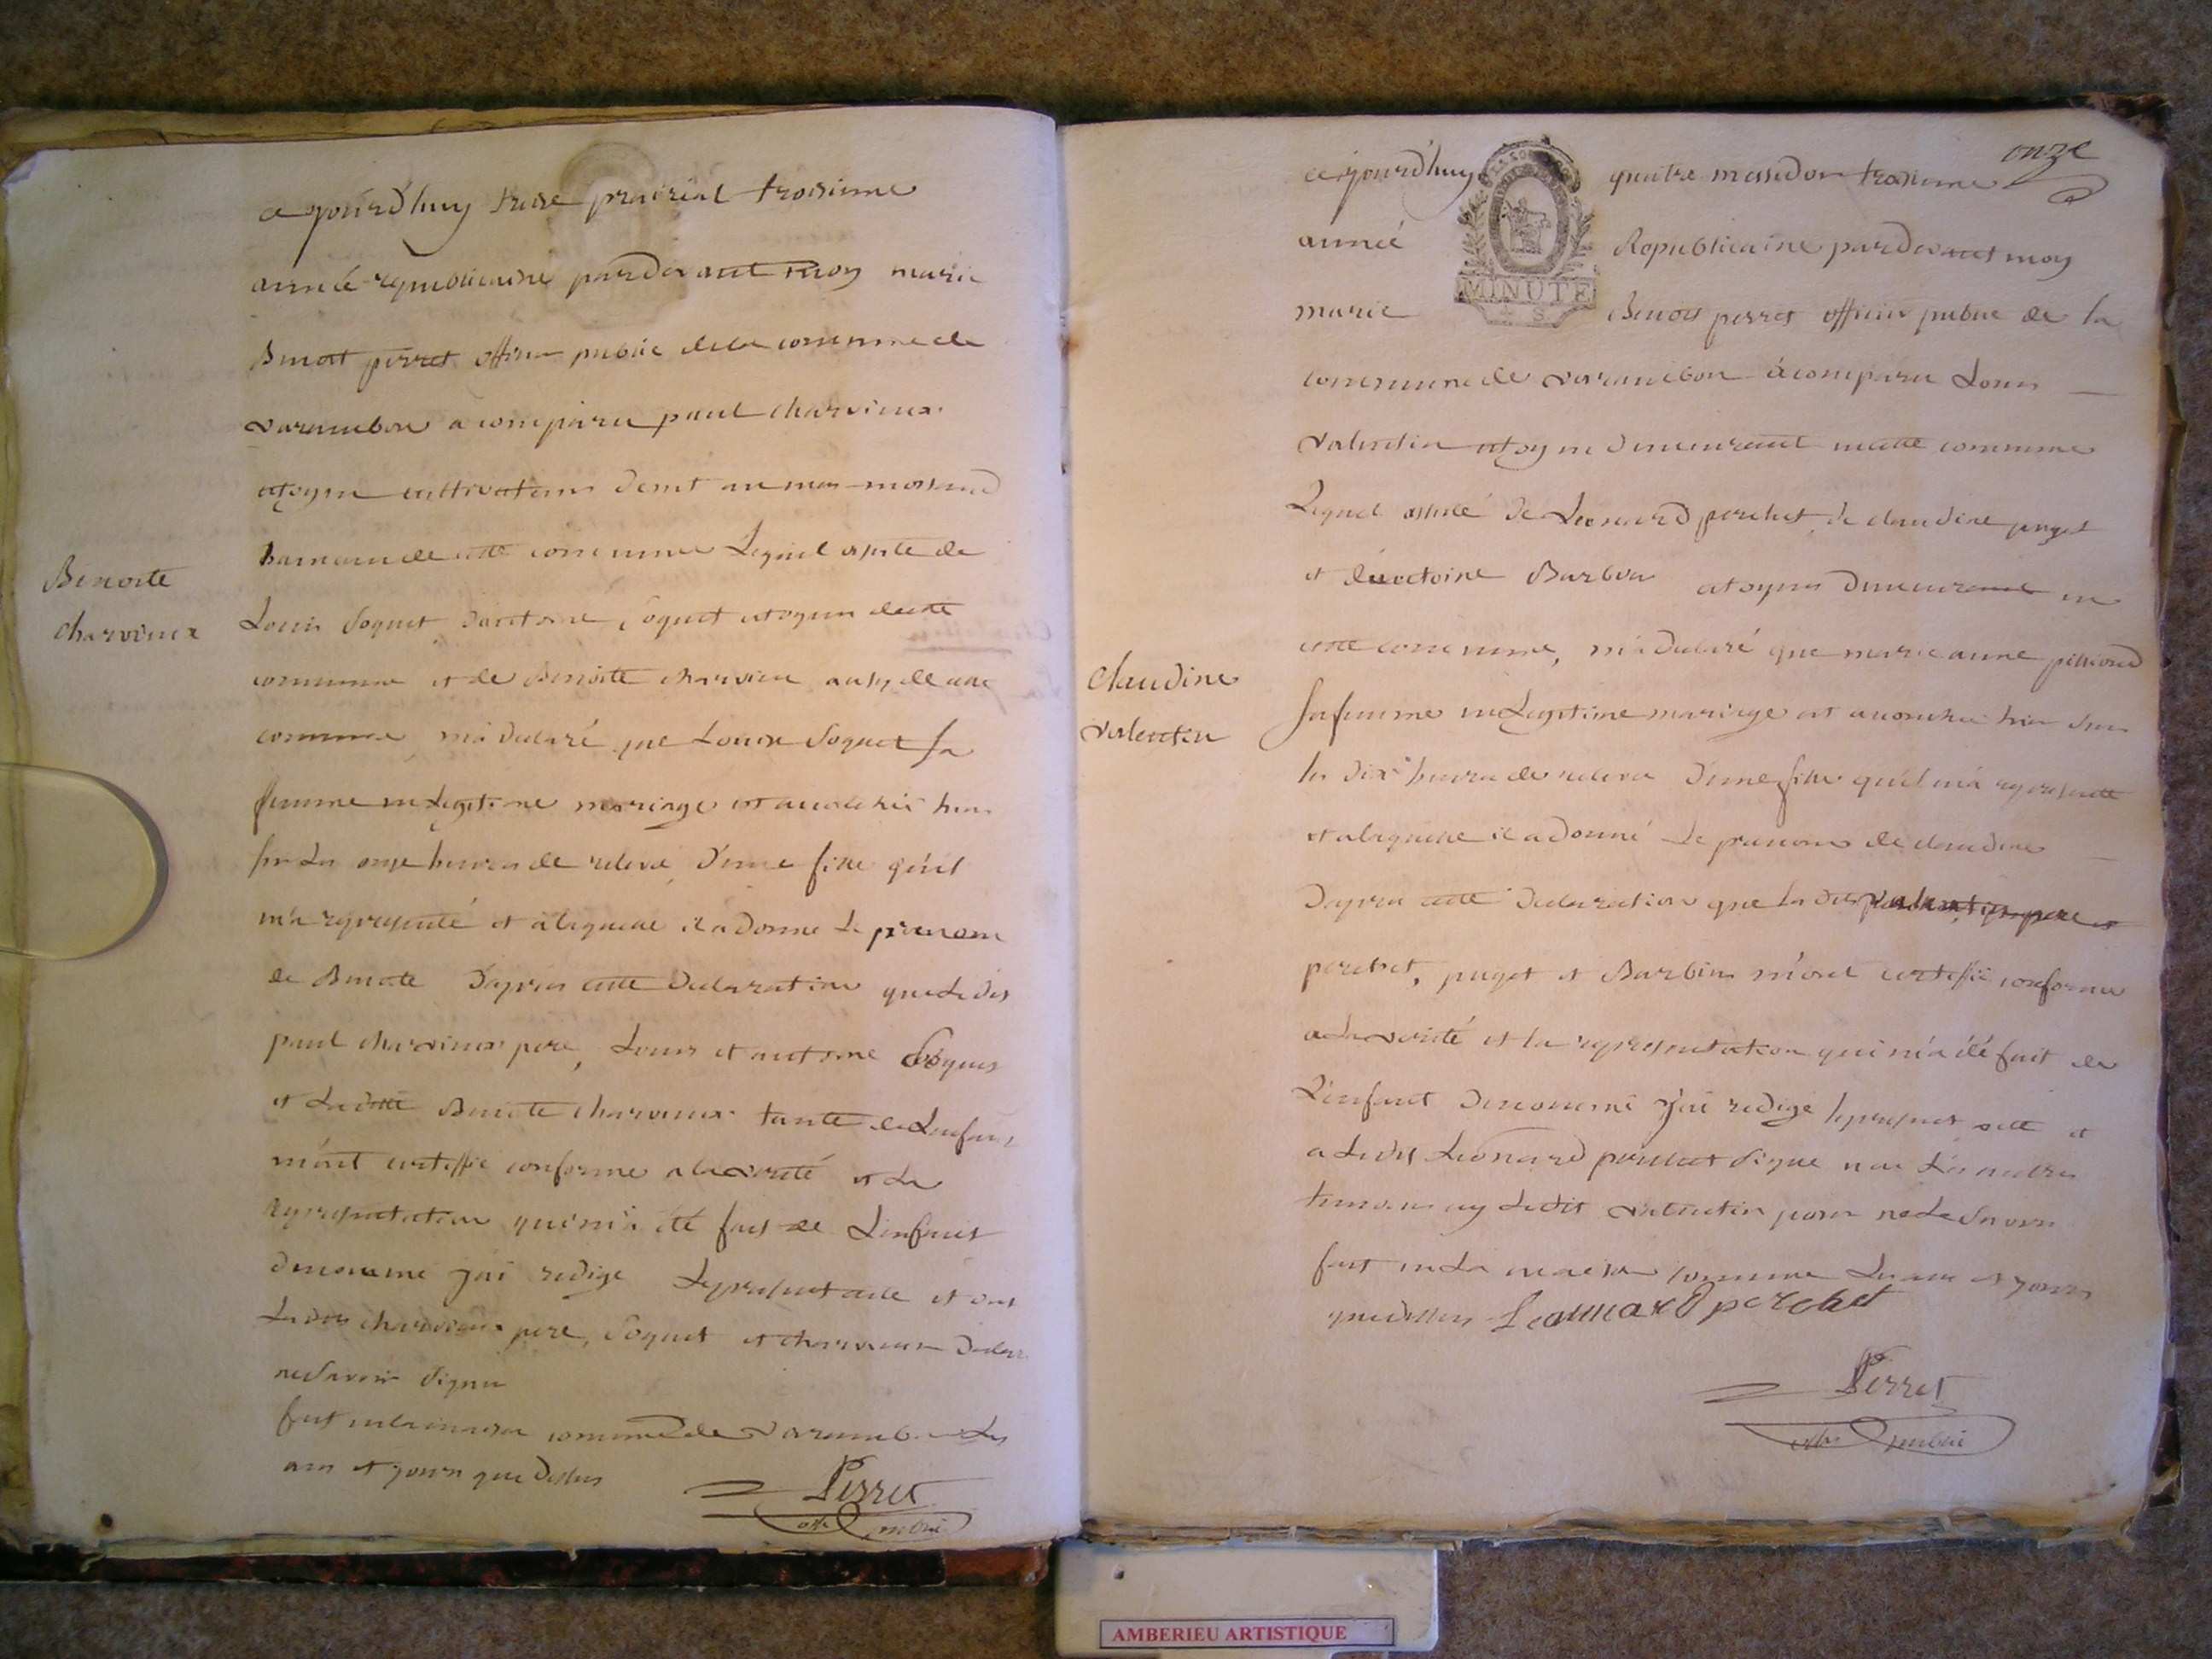 Benoite
charvieux
ce jourd'huy treise prairial troisieme
année republicaine pardevant moy marie
Benoit perret officier public dela commune de
varambon a comparu paul charvieux
citoyen cultivateur demt au mas morland
hameau de cette commune Lequel assisté de
Louis Soquet d'antoine Soquet citoyen decette
commune et de Benoite charvieux aussy de cette
commune m'a declaré que Louise Soquet sa
femme en Legitime mariage est accouchée hier
sur Les onze heures de relevé d'une fille qu'il
m'a representé et a laquelle il a donné Le prenom
de Benoite d'apres cette declaration que Ledit
paul charvieux pere, Louis et antoine Soquet
et Laditte Benoite charvieux tante de Lenfant
m'ont certiffié conforme a la verité et La
representation qui m'a été fait de L'enfant
denommé j'ai redigé Lepresent acte et ont
Ledit charvieux pere, Soquet et charvieux declaré
ne Savoir Signer
fait en la maison commune de varambon Les
an et jour que dessus
Perret
offr public
onze
MINUTE
ce jourd'huy quatre messidor troisieme
année Republicaine pardevant moy
marie Benoit perret officier public de la
commune de varambon a comparu Louis
valentin citoyen demeurant en cette commune
Lequel assisté de Leonard perchet, de claudine puget
et d'antoine Barbier citoyens demeurant en
cette commune, m'a declaré que marie anne
sa femme en Legitime mariage est accouchée hier sur
les dix heures de relevé d'une fille qu'il m'a representé
et a laquelle il a donné Le prenom de claudine
claudine
valentin
d'apres cette declaration que Ledit valentin pere et
perchet, puget et Barbier m'ont certiffié conforme
a la verité et la representation qui m'a été fait de
L'enfant denommé j'ai redigé lepresent acte et
a Ledit Leonard perchet Signé non Les autres
temoins ny Ledit valentin pour ne Le Savoir
fait en La maison commune Les an et jour
que dessus Leonard perchet
Perret
offr public
AMBERIEU ARTISTIQUE